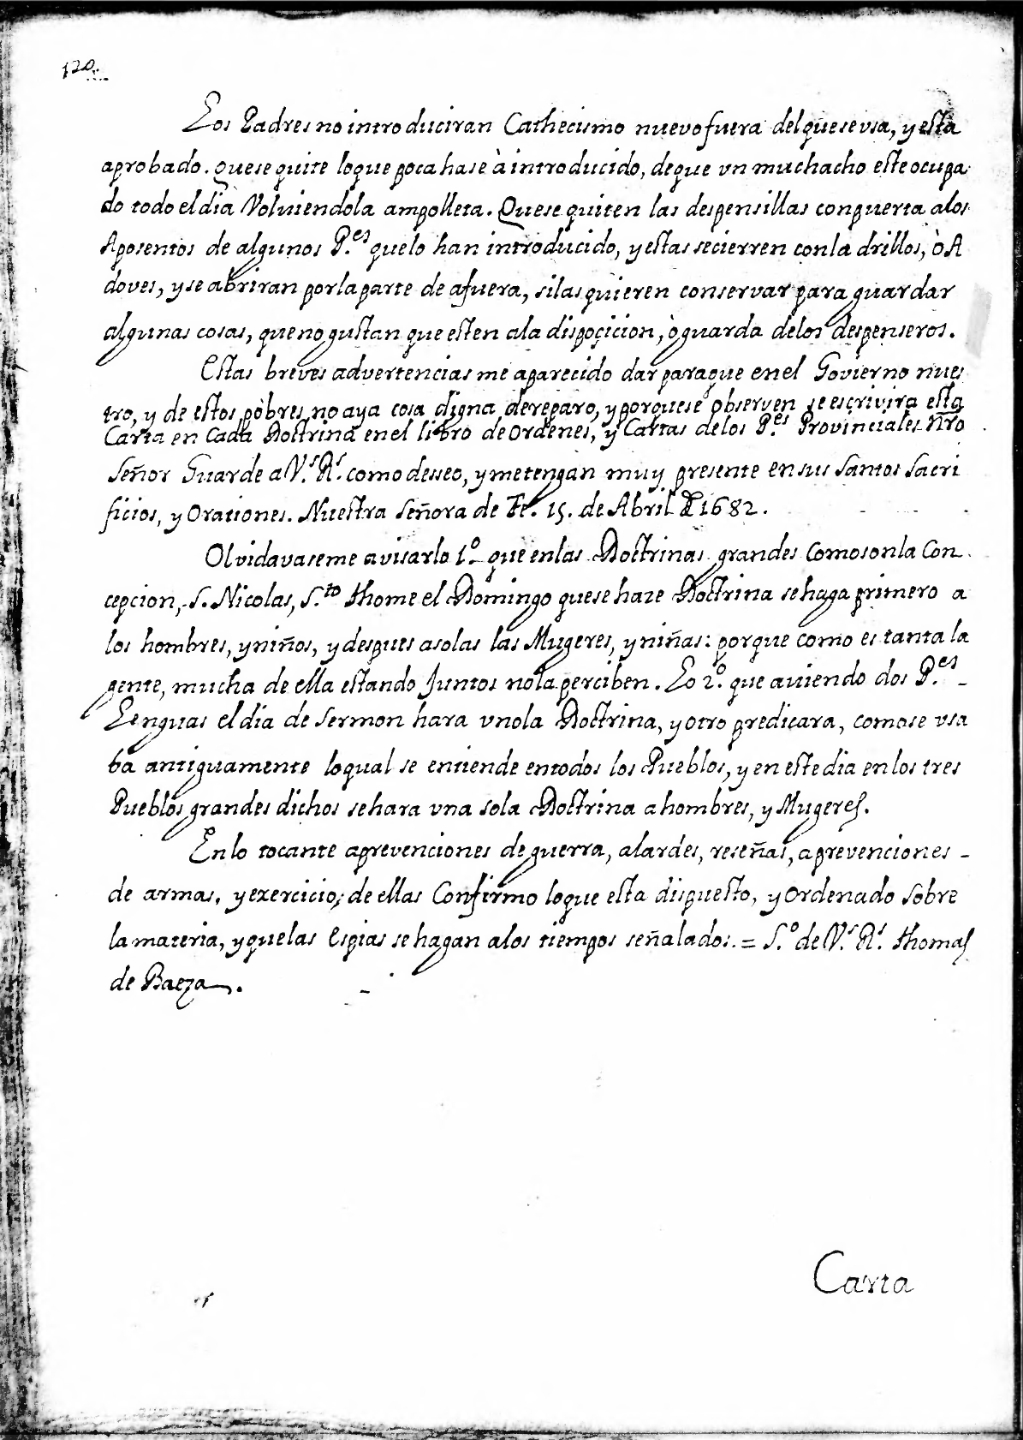 120
Los Padres no introduciran Cathecismo nuevo fuera del que se usa, y està
aprobado. Que se quite lo que poca ha se à introducido, de que vn muchacho este ocupa
do todo el dia Volviendo la ampolleta. Que se quiten las despensillas con puerta a los
Aposentos de algunos P.es que lo han introducido, y estas se cierren con ladrillos, ò A
doves, y se abriran por la parte de afuera, si las quieren conservar para guardar
algunas cosas, que no gustan que esten a la dispocicion, ò guarda de los despenseros.
Estas breves advertencias me a parecido dar para que en el Govierno nues
tro, y de estos pobres no aya cosa digna de reparo, y porque se observen se escrivira esta
Carta en cada Doctrina en el libro de Ordenes, y Cartas de los P.es Provinciales nro
Señor Guarde a V.s R.s como desseo, y me tengan muy presente en sus santos sacri
ficios, y Orationes. Nuestra Señora de Fe. 15. de Abril de 1682.
Olvidavaseme avisar lo 1.o que en las Doctrinas grandes como son la Con
cepcion, S. Nicolas, S.to thome el Domingo que se haze Doctrina se haga primero a
los hombres, y niños, y despues a solas las Mugeres, y niñas: porque como es tanta la
gente, mucha de ella estando Juntos no la perciben. Lo 2.o que aviendo dos P.es
Lenguas el dia de Sermon hara vno la Doctrina, y otro predicara, como se vsa
ba antiguamente lo qual se entiende en todos los Pueblos, y en este dia en los tres
Pueblos grandes dichos se hara vna sola Doctrina a hombres, y Mugeres.
En lo tocante a prevenciones de guerra, alardes, reseñas, aprevenciones
de armas, y exercicio, de ellas Confirmo lo que esta dispuesto, y Ordenado sobre
la materia, y que las Espias se hagan a los tiempos señalados. = S.o de V.s R.s thomas
de Baeza.
Carta